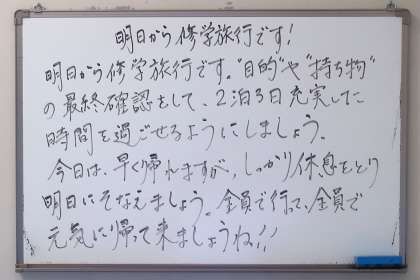 明日から修学旅行です!
明日から修学旅行です。"目的"や"持ち物"
の最終確認をして、2泊3日充実した
時間を過ごせるようにしましょう。
今日は、早く帰れますが、しっかり休息をとり
明日にそなえましょう。全員で行って、全員で
元気に帰って来ましょうね!!